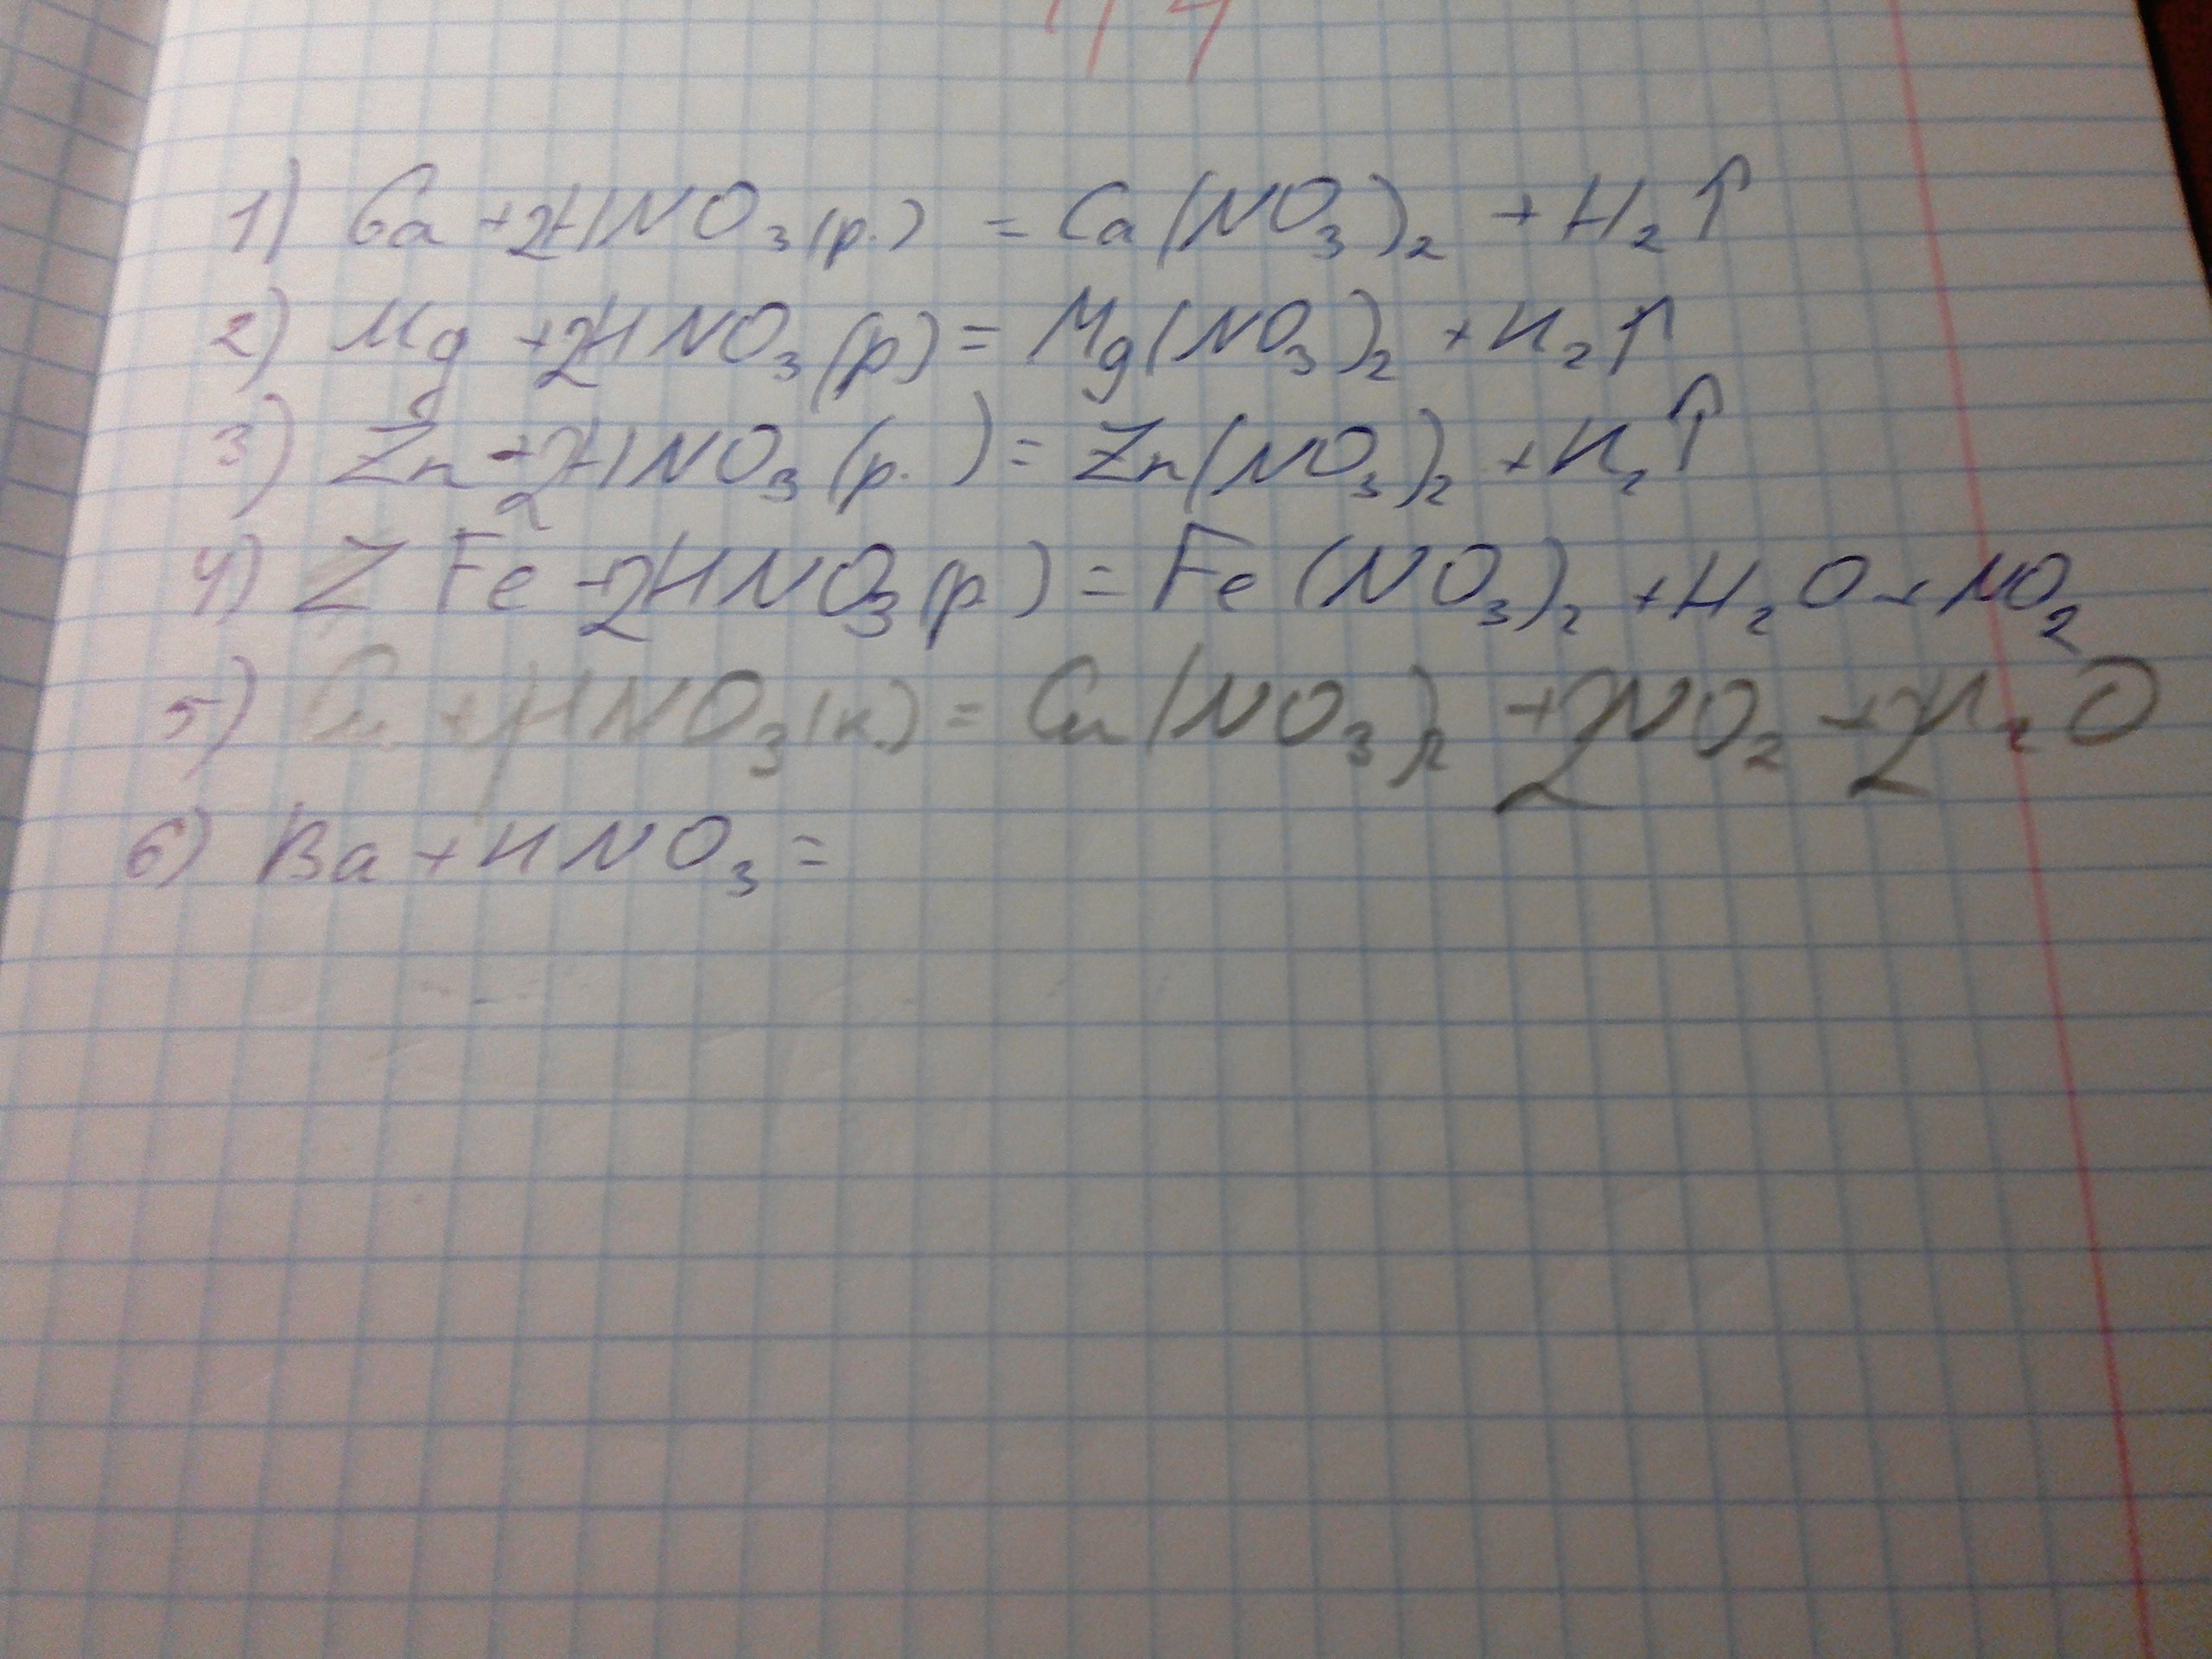 1) Ca + 2HNO₃(р.) = Ca(NO₃)₂ + H₂↑
2) Mg + 2HNO₃(р) = Mg(NO₃)₂ + H₂↑
3) Zn + 2HNO₃(р.) = Zn(NO₃)₂ + H₂↑
4) Z Fe + 2HNO₃(р.) = Fe(NO₃)₂ + H₂O + NO₂
5) Cu + 4HNO₃(к.) = Cu(NO₃)₂ + 2NO₂ + 2H₂O
6) Ba + HNO₃ =